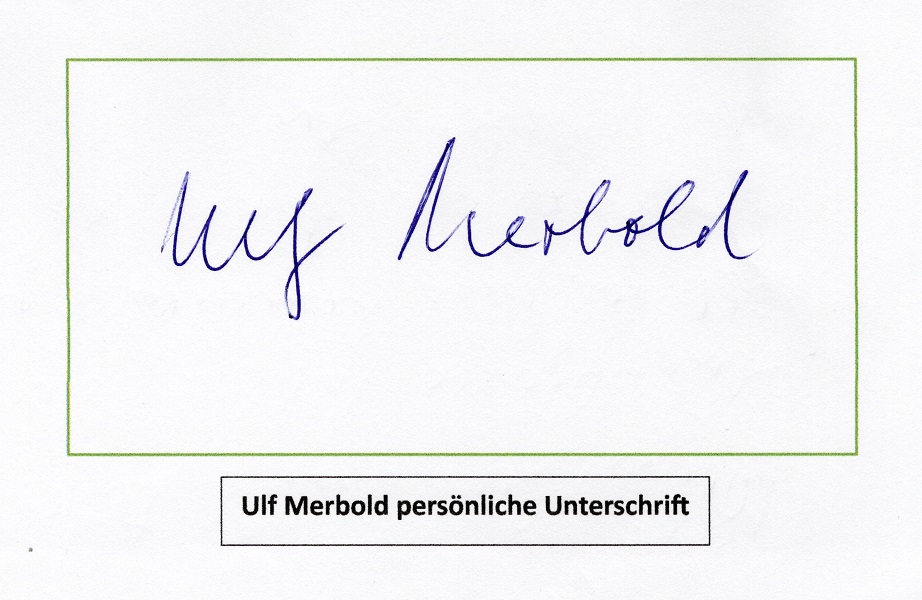 Ulf Merbold
Ulf Merbold persönliche Unterschrift